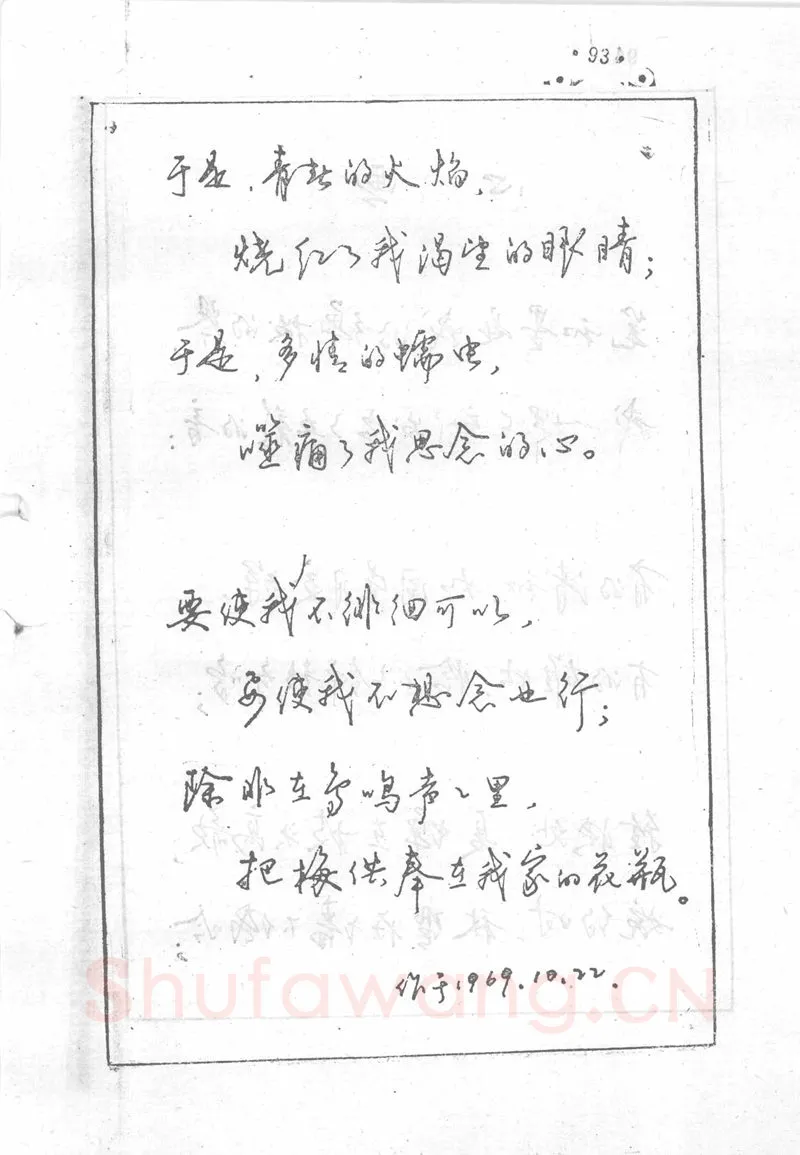 ·93·
于是，青春的火焰，
烧红了我渴望的眼睛；
于是，多情的蠕虫，
噬痛了我思念的心。
要使我不徘徊可以，
要使我不想念也行；
除非在鸟鸣声声里，
把梅供奉在我家的花瓶。
作于1969.10.22.
Shufawang.CN